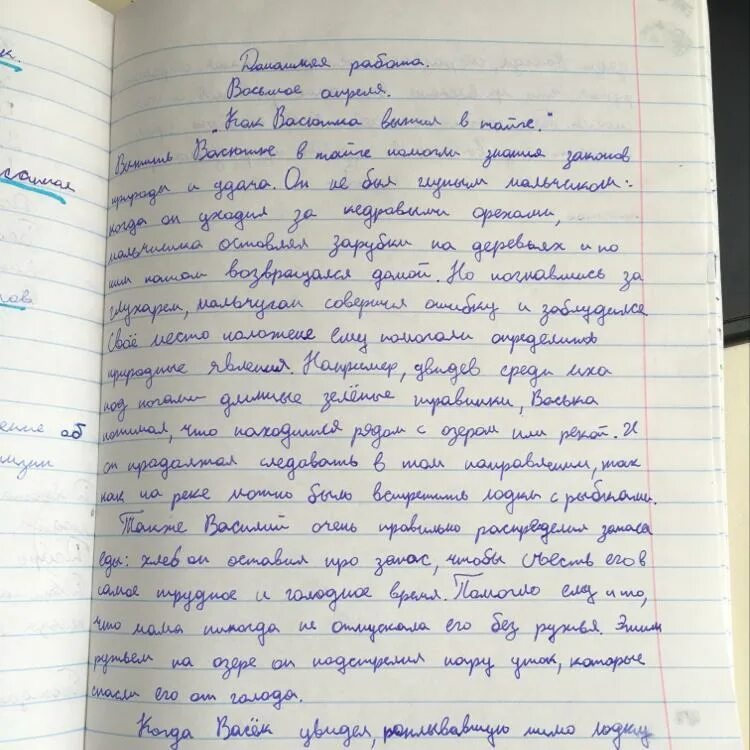 к.
Домашняя работа.
Восьмое апреля.
"Как Васютка выжил в тайге."
Выжить Васютке в тайге помогли знания законов
самая
природы и удача. Он не был глупым мальчиком:
когда он уходил за кедравыми орехами,
мальчишка оставлял зарубки на деревьях и по
ним потом возвращался домой. Но погнавшись за
глухарем, мальчуган совершил ошибку и заблудился
ов
Своё место положене ему помогали определить
природные явления. Например, увидев среди мха
под ногами длинные зелёные травинки, Васька
ение об
понимал, что находится рядом с озером или рекой. И
зии
он продолжал следовать в том направлении, так
как на реке можно было встретить лодки с рыбками.
Также Василий очень правильно распределил запаса
еды: хлеб он оставил про запас, чтобы съесть его в
самое трудное и голодное время. Помогло ему и то,
что мама никогда не отпускала его без ружья. Этим
ружьем на озере он подстрелил пару уток, которые
спасли его от голода.
Когда Васёк увидел, раплывавшую мимо лодку